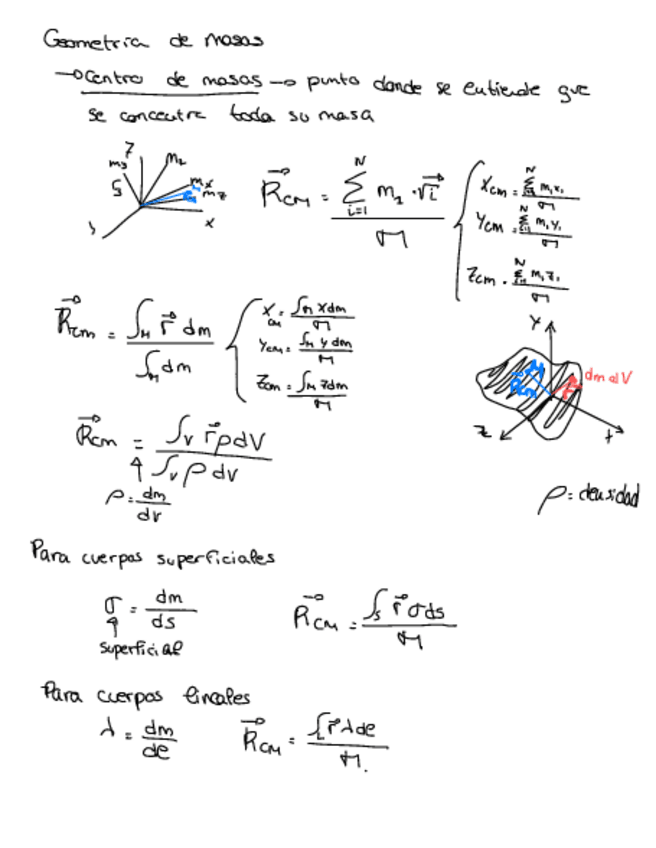 Geometria de masas
→ Centro de masas → punto donde se entiende que
se concentra toda su masa
z m₃ m₂ mx m z x y
R⃗cm = Σ_{i=1}^{N} m₂ · r⃗i / M
Xcm = Σ_{i=1}^{N} m₁x₁ / M
Ycm = Σ_{i=1}^{N} m₁y₁ / M
Zcm = Σ_{i=1}^{N} m₁z₁ / M
R⃗cm = ∫_M r⃗ dm / ∫_M dm
Xcm = ∫_M x dm / M
Ycm = ∫_M y dm / M
Zcm = ∫_M z dm / M
Y
dm dV
R⃗cm r⃗
Z
R⃗cm = ∫_V r⃗ρdV / ∫_V ρ dv
ρ = dm / dv
ρ = densidad
Para cuerpos superficiales
σ = dm / ds
superficial
R⃗CM = ∫_S r⃗ σ ds / M
Para cuerpos lineales
λ = dm / dl
R⃗CM = ∫_L r⃗ λ dl / M.